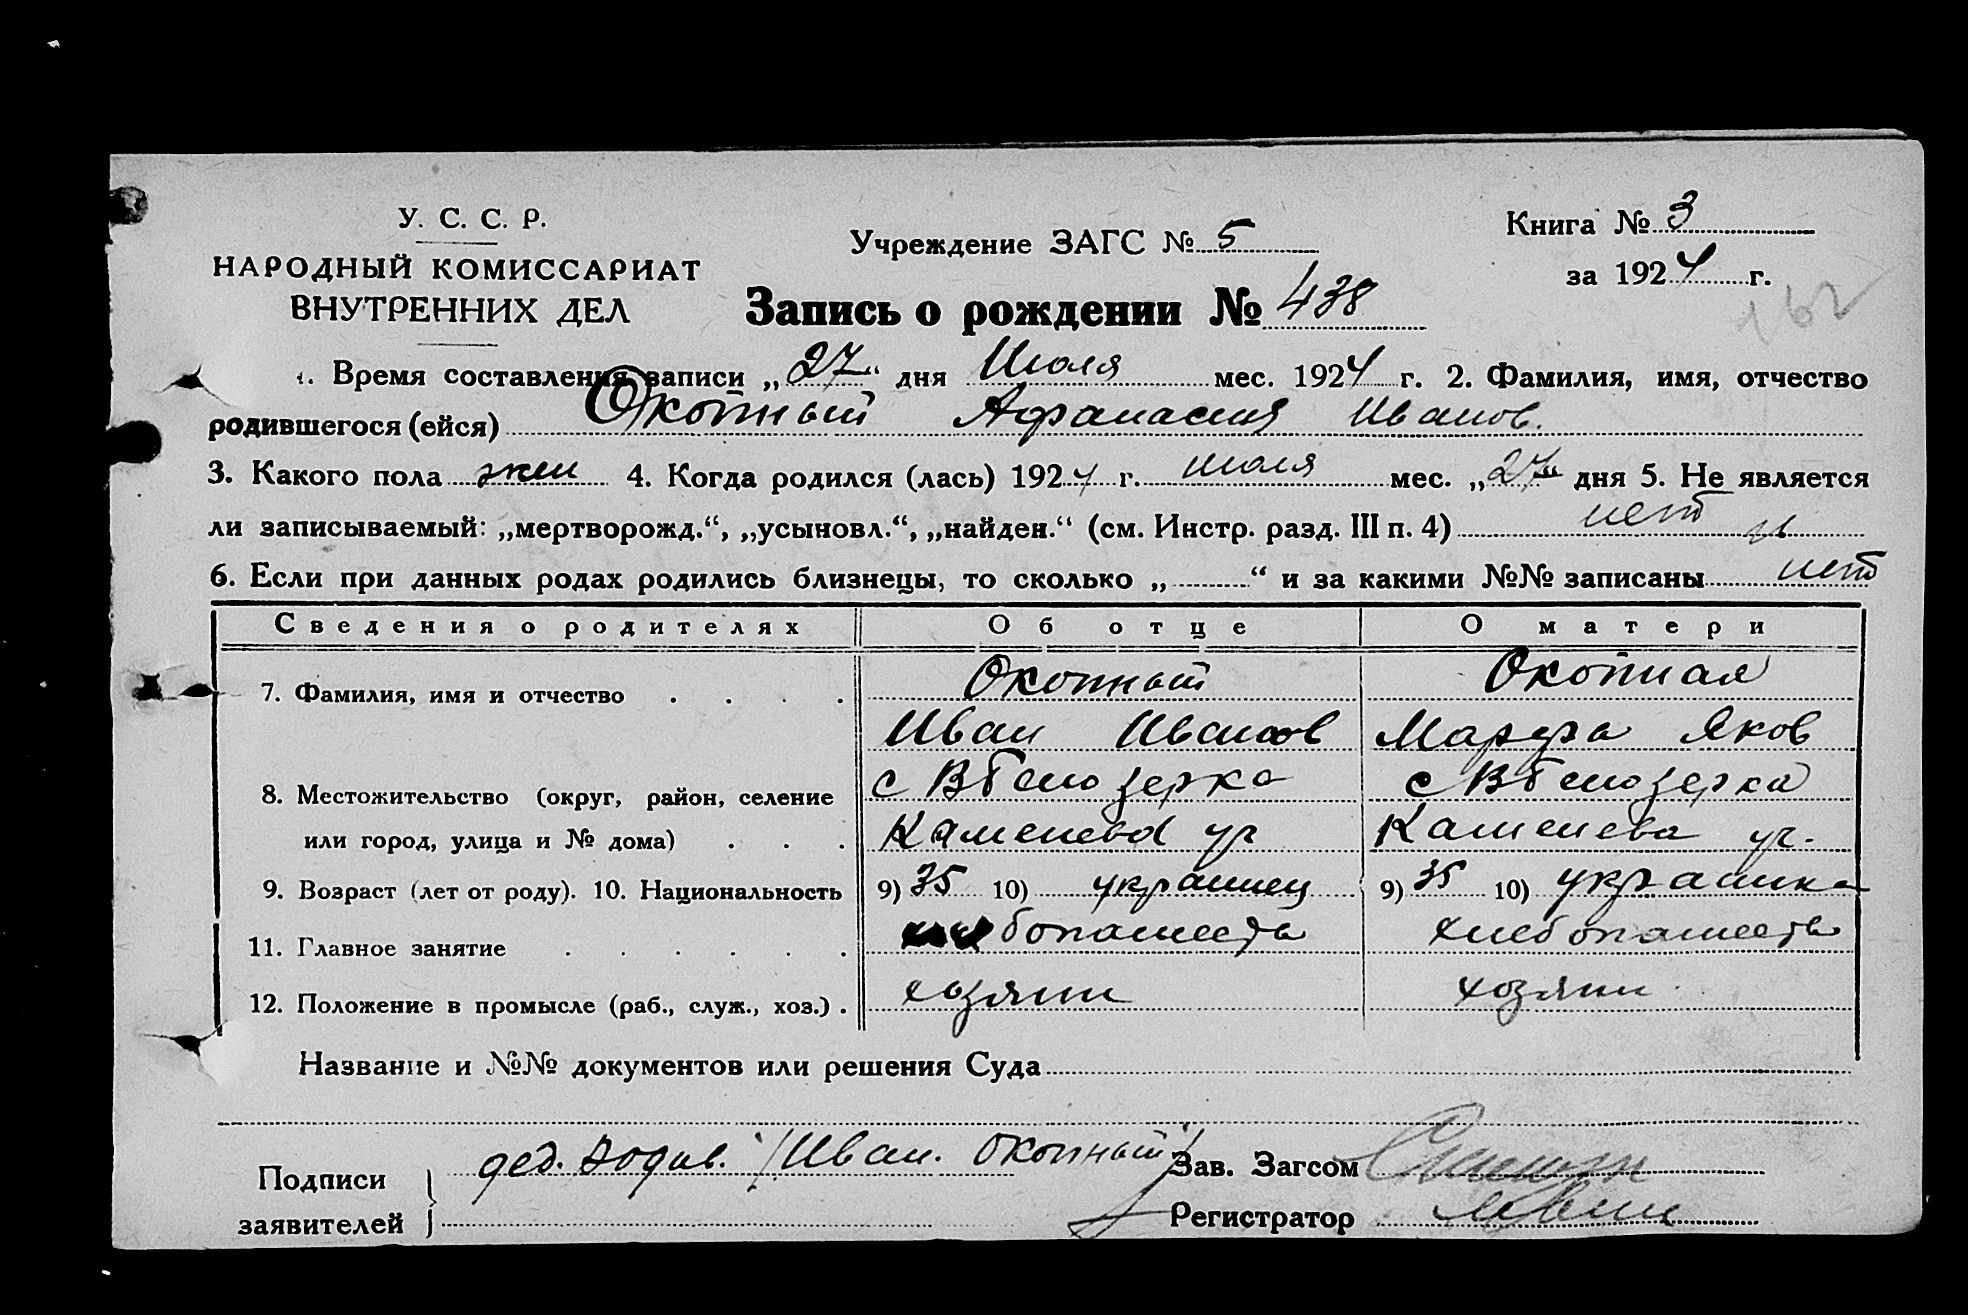 У. С. С. Р.
НАРОДНЫЙ КОМИССАРИАТ
ВНУТРЕННИХ ДЕЛ
Учреждение ЗАГС № 5
Книга № 3
за 1924 г.
162
Запись о рождении № 438
1. Время составления записи „27“ дня Июля мес. 1924 г. 2. Фамилия, имя, отчество
родившегося (ейся) Окопный Афанасия Иванов.
3. Какого пола жен 4. Когда родился (лась) 1924 г. июля мес. „27“ дня 5. Не является
ли записываемый: „мертворожд.“, „усыновл.“, „найден.“ (см. Инстр. разд. III п. 4) нет
6. Если при данных родах родились близнецы, то сколько „ “ и за какими №№ записаны нет
Сведения о родителях Об отце О матери
7. Фамилия, имя и отчество . . . . Окопный Окопная
Иван Иванов Марфа Яков
8. Местожительство (округ, район, селение с ВБелозерка с ВБелозерка
или город, улица и № дома) . . . Каменева ул Каменева ул.
9. Возраст (лет от роду). 10. Национальность 9) 35 10) украинец 9) 35 10) украинка
11. Главное занятие . . . . . . бопашеств хлебопашеств
12. Положение в промысле (раб., служ., хоз.) . хозяин хозяин
Название и №№ документов или решения Суда
Подписи
заявителей
дед. /Иван. Окопный/
Зав. Загсом
Регистратор Левин